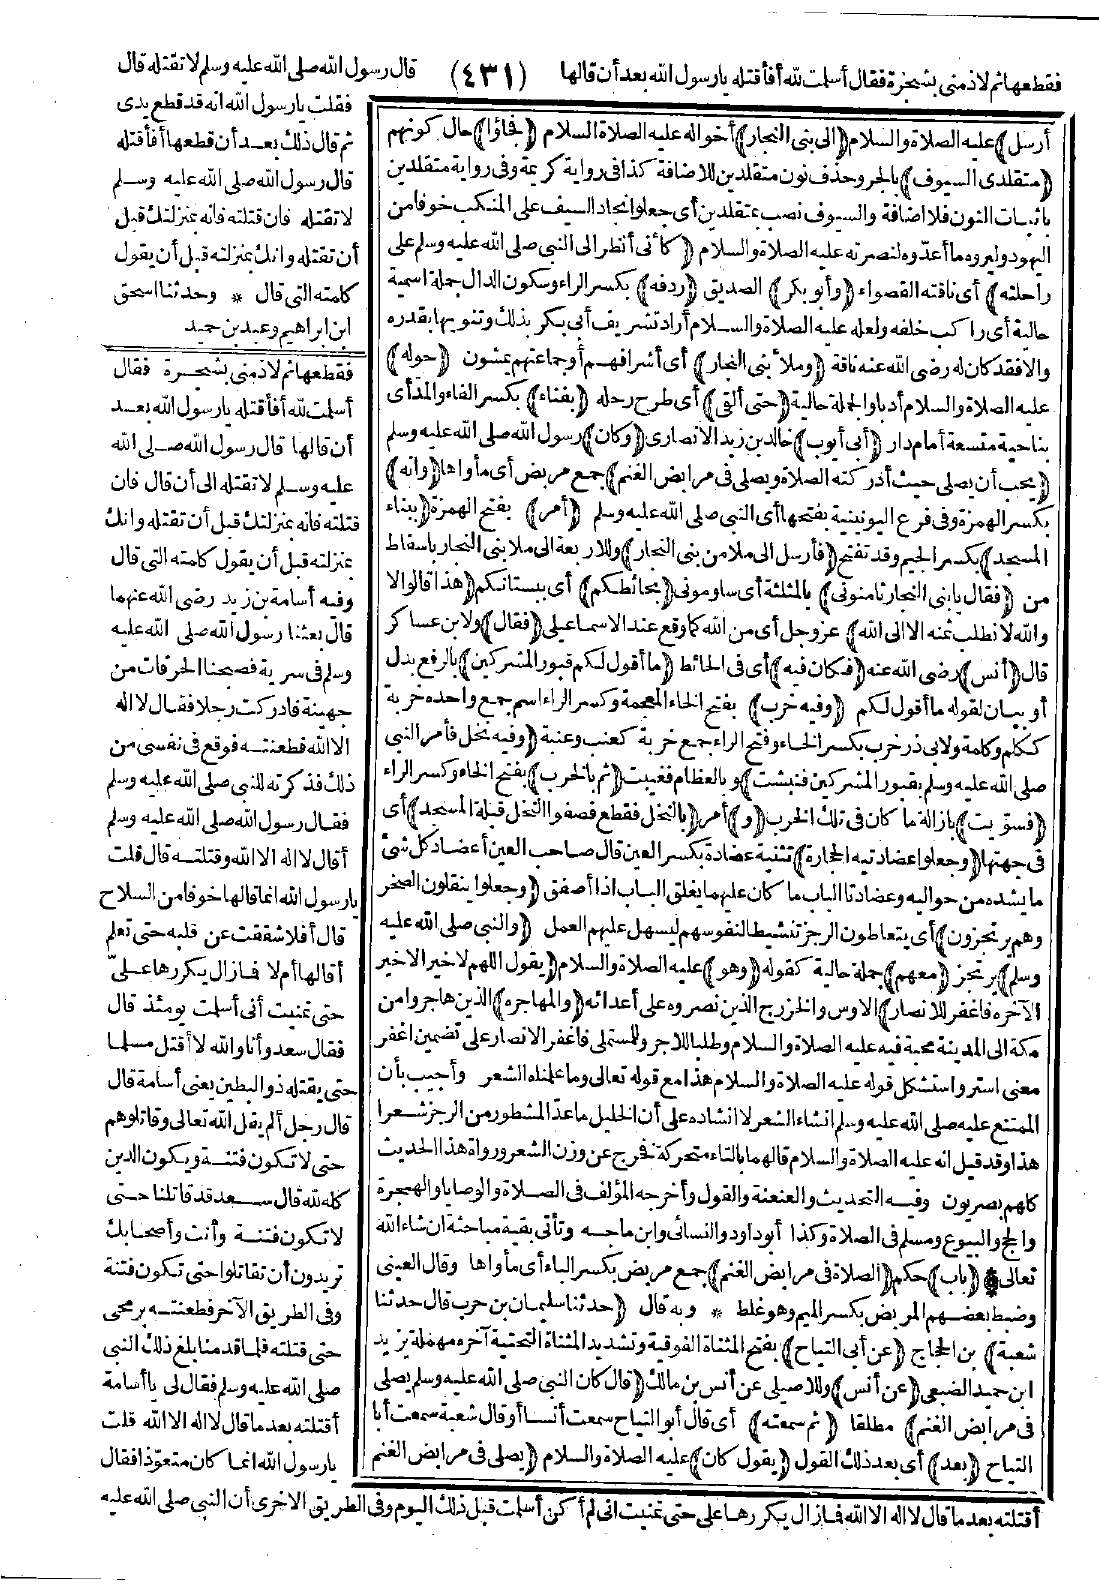 فقطعها ثم لاذ منى بشجرة فقال أسلمت لله أفأقتله يا رسول الله بعد أن قالها (٤٣١) قال رسول الله صلى الله عليه وسلم لا تقتله قال
أرسل) عليه الصلاة والسلام (الى بنى النجار) أخواله عليه الصلاة السلام (فجاؤا) حال كونهم
(متقلدى السيوف) بالجر وحذف نون متقلدين للاضافة كذا فى رواية كريمة وفى رواية متقلدين
باثبات النون فلا اضافة والسيوف نصب بمتقلدين أى جعلوا نجاد السيف على المنكب خوفا من
اليهود وليروه ما أعدّوه لنصرته عليه الصلاة والسلام (كأنى أنظر الى النبي صلى الله عليه وسلم على
راحلته) أى ناقته القصواء (وأبو بكر) الصديق (ردفه) بكسر الراء وسكون الدال جملة اسمية
حالية أى راكب خلفه ولعله عليه الصلاة والسلام أراد تشريف أبى بكر بذلك وتنويها بقدره
والا فقد كان له رضى الله عنه ناقة (وملأ بنى النجار) أى أشرافهم أو جماعتهم يمشون (حوله)
عليه الصلاة والسلام أدبا والجملة حالية (حتى ألقى) أى طرح رحله (بفناء) بكسر الفاء والمد أى
بناحية متسعة أمام دار (أبى أيوب) خالد بن زيد الانصارى (وكان) رسول الله صلى الله عليه وسلم
(يحب أن يصلى حيث أدركته الصلاة ويصلى فى مرابض الغنم) جمع مربض أى مأواها (وانه)
بكسر الهمزة وفى فرع اليونينية بفتحها أى النبي صلى الله عليه وسلم (أمر) بفتح الهمزة (ببناء
المسجد) بكسر الجيم وقد تفتح (فأرسل الى ملا من بنى النجار) وللاربعة الى ملا بنى النجار باسقاط
من (فقال يا بنى النجار ثامنونى) بالمثلثة أى ساومونى (بحائطكم) أى ببستانكم (هذا قالوا لا
والله لا نطلب ثمنه الا الى الله) عز وجل أى من الله كما وقع عند الاسماعيلى (فقال) ولابن عساكر
قال (أنس) رضى الله عنه (فكان فيه) أى فى الحائط (ما أقول لكم قبور المشركين) بالرفع بدل
أو بيان لقوله ما أقول لكم (وفيه خرب) بفتح الخاء المعجمة وكسر الراء اسم جمع واحده خربة
ككلم وكلمة ولابى ذر خرب بكسر الخاء وفتح الراء جمع خربة كعنب وعنبة (وفيه نخل فأمر النبي
صلى الله عليه وسلم بقبور المشركين فنبشت) وبالعظام فغيبت (ثم بالخرب) بفتح الخاء وكسر الراء
(فسوّيت) بازالة ما كان فى تلك الخرب (و) أمر (بالنخل فقطع فصفوا النخل قبلة المسجد) أى
فى جهتها (وجعلوا عضادتيه الحجارة) تثنية عضادة بكسر العين قال صاحب العين أعضاد كل شئ
ما يشده من حواليه وعضادتا الباب ما كان عليهما يغلق الباب اذا أصفق (وجعلوا ينقلون الصخر
وهم يرتجزون) أى يتعاطون الرجز تنشيطا لنفوسهم ليسهل عليهم العمل (والنبي صلى الله عليه
وسلم) يرتجز (معهم) جملة حالية كقوله (وهو) عليه الصلاة والسلام (يقول اللهم لا خير الا خير
الآخره فاغفر للانصار) الاوس والخزرج الذين نصروه على أعدائه (والمهاجره) الذين هاجروا من
مكة الى المدينة محبة فيه عليه الصلاة والسلام وطلبا للاجر وللمستملى فاغفر الانصار على تضمين اغفر
معنى استر واستشكل قوله عليه الصلاة والسلام هذا مع قوله تعالى وما علمناه الشعر وأجيب بأن
الممتنع عليه صلى الله عليه وسلم انشاء الشعر لا انشاده على أن الخليل ما عدّ المشطور من الرجز شعرا
هذا وقد قيل انه عليه الصلاة والسلام قالهما بالتاء متحركة فخرج عن وزن الشعر ورواة هذا الحديث
كلهم بصريون وفيه التحديث والعنعنة والقول وأخرجه المؤلف فى الصلاة والوصايا والهجرة
والحج والبيوع ومسلم فى الصلاة وكذا أبو داود والنسائى وابن ماجه وتأتى بقية مباحثه ان شاء الله
تعالى (باب) حكم (الصلاة فى مرابض الغنم) جمع مربض بكسر الباء أى مأواها وقال العينى
وضبط بعضهم المربض بكسر الميم وهو غلط * وبه قال (حدثنا سليمان بن حرب قال حدثنا
شعبة) بن الحجاج (عن أبى التياح) بفتح المثناة الفوقية وتشديد المثناة التحتية آخره مهملة يزيد
ابن حميد الضبعى (عن أنس) وللاصيلى عن أنس بن مالك (قال كان النبي صلى الله عليه وسلم يصلى
فى مرابض الغنم) مطلقا (ثم سمعته) أى قال أبو التياح سمعت أنسا أو قال شعبة سمعت أبا
التياح (بعد) أى بعد ذلك القول (يقول كان) عليه الصلاة والسلام (يصلى فى مرابض الغنم
فقلت يا رسول الله انه قد قطع يدى
ثم قال ذلك بعد أن قطعها أفأقتله
قال رسول الله صلى الله عليه وسلم
لا تقتله فان قتلته فانه بمنزلتك قبل
أن تقتله وانك بمنزلته قبل أن يقول
كلمته التى قال * وحدثنا اسحق
ابن ابراهيم وعبد بن حميد
فقطعها ثم لاذ منى بشجرة فقال
أسلمت لله أفأقتله يا رسول الله بعد
أن قالها قال رسول الله صلى الله
عليه وسلم لا تقتله الى أن قال فان
قتلته فانه بمنزلتك قبل أن تقتله وانك
بمنزلته قبل أن يقول كلمته التى قال
وفيه أسامة بن زيد رضى الله عنهما
قال بعثنا رسول الله صلى الله عليه
وسلم فى سرية فصبحنا الحرقات من
جهينة فادركت رجلا فقال لا اله
الا الله فطعنته فوقع فى نفسى من
ذلك فذكرته للنبى صلى الله عليه وسلم
فقال رسول الله صلى الله عليه وسلم
أقال لا اله الا الله وقتلته قال قلت
يا رسول الله انما قالها خوفا من السلاح
قال أفلا شققت عن قلبه حتى تعلم
أقالها أم لا فما زال يكررها علىّ
حتى تمنيت أنى أسلمت يومئذ قال
فقال سعد وأنا والله لا أقتل مسلما
حتى يقتله ذو البطين يعنى أسامة قال
قال رجل ألم يقل الله تعالى وقاتلوهم
حتى لا تكون فتنة ويكون الدين
كله لله قال سعد قد قاتلنا حتى
لا تكون فتنة وأنت وأصحابك
تريدون أن تقاتلوا حتى تكون فتنة
وفى الطريق الآخر فطعنته برمحى
حتى قتلته فلما قدمنا بلغ ذلك النبي
صلى الله عليه وسلم فقال لى يا أسامة
أقتلته بعد ما قال لا اله الا الله قلت
يا رسول الله انما كان متعوّذا فقال
أقتلته بعد ما قال لا اله الا الله فما زال يكررها على حتى تمنيت انى لم أكن أسلمت قبل ذلك اليوم وفى الطريق الاخرى أن النبي صلى الله عليه